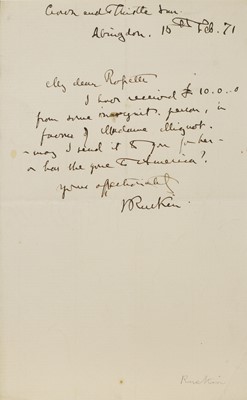 Crown and Thistle Inn
Abingdon. 10th Feb. 71
My dear Rossetti
I have received £10.0.0
from some incognito person, in
favour of Madame
- may I send it to you for her -
or has she gone to America?
Yours affectionately
JRuskin
Ruskin